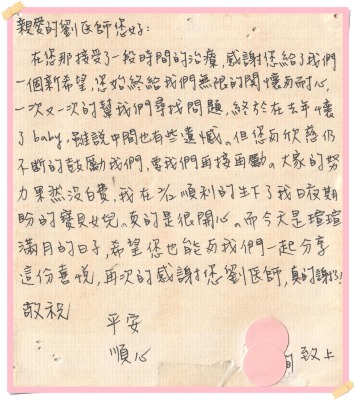 親愛的劉医師您好:
在您那接受了一段時間的治療,感謝您給了我們
一個新希望,您始終給我們無限的関懷与耐心,
一次又一次的幫我們尋找問題,終於在去年懷
了baby,雖說中間也有些遺憾。但您与欣慈仍
不断的鼓勵我們,要我們再接再勵。大家的努
力果然没白費,我在2/2順利的生下了我日夜期
盼的寶貝女兒。真的是很開心。而今天是瑄瑄
滿月的日子,希望您也能与我們一起分享
這份喜悅,再次的感謝您劉医師,真的謝謝!
敬祝
平安
順心
致上